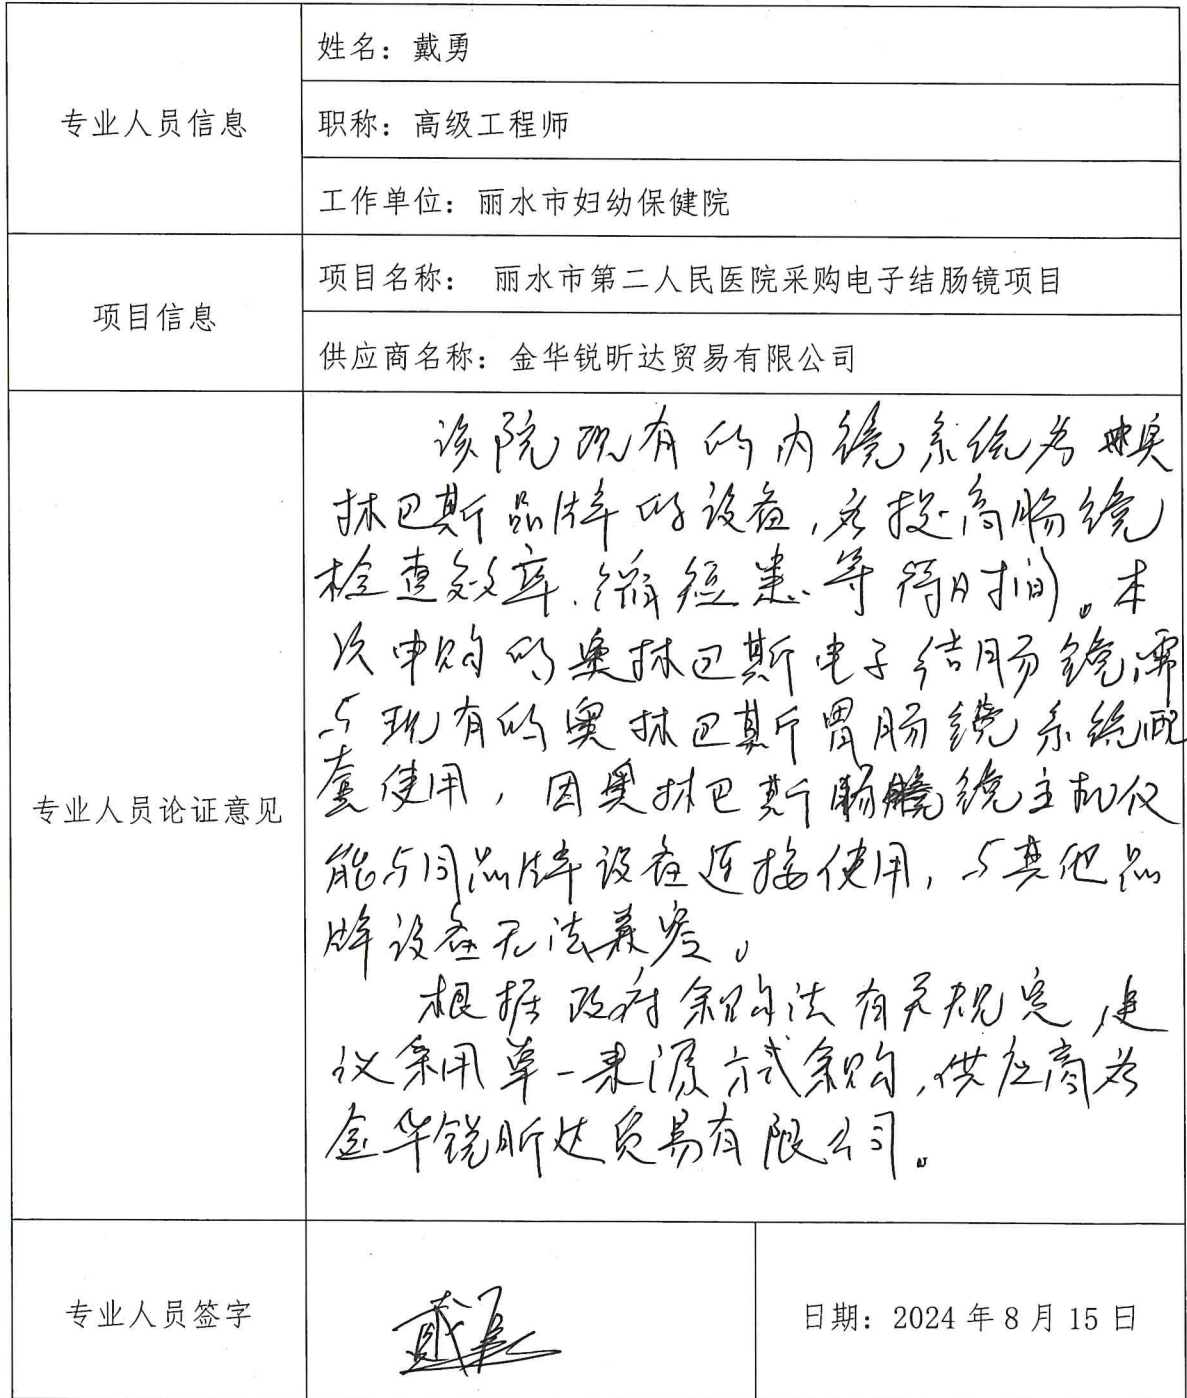 专业人员信息
姓名：戴勇
职称：高级工程师
工作单位：丽水市妇幼保健院
项目信息
项目名称： 丽水市第二人民医院采购电子结肠镜项目
供应商名称：金华锐昕达贸易有限公司
专业人员论证意见
该院现有的内镜系统为奥
林巴斯品牌的设备，为提高肠镜
检查效率、缩短患等待时间。本
次申购的奥林巴斯电子结肠镜需
与现有的奥林巴斯胃肠镜系统配
套使用，因奥林巴斯肠镜主机仅
能与同品牌设备连接使用，与其他品
牌设备无法兼容。
根据政府采购法有关规定，建
议采用单一来源方式采购，供应商为
金华锐昕达贸易有限公司。
专业人员签字
戴勇
日期：2024年8月15日